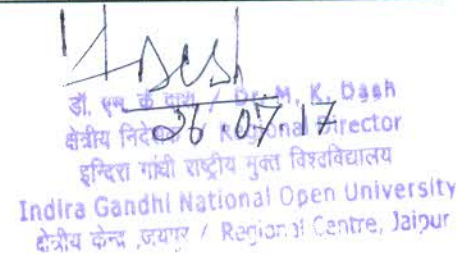 डॉ. एम. के. दाश / Dr. M. K. Dash
26.07.17
क्षेत्रीय / Regional Director
इन्दिरा गांधी राष्ट्रीय मुक्त विश्वविद्यालय
Indira Gandhi National Open University
क्षेत्रीय केन्द्र, जयपुर / Regional Centre, Jaipur